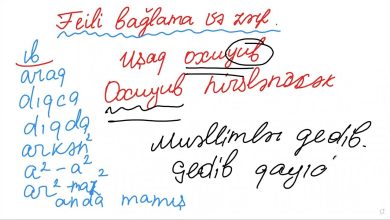 Feili bağlama və zərf.
ıb
araq
dıqca
dıqda
arkən²
a² - a²
ar² - maz
anda mamış
Uşaq oxuyub
Oxuyub hirslənəcək
Müəllimlər gedib.
gedib qayıd